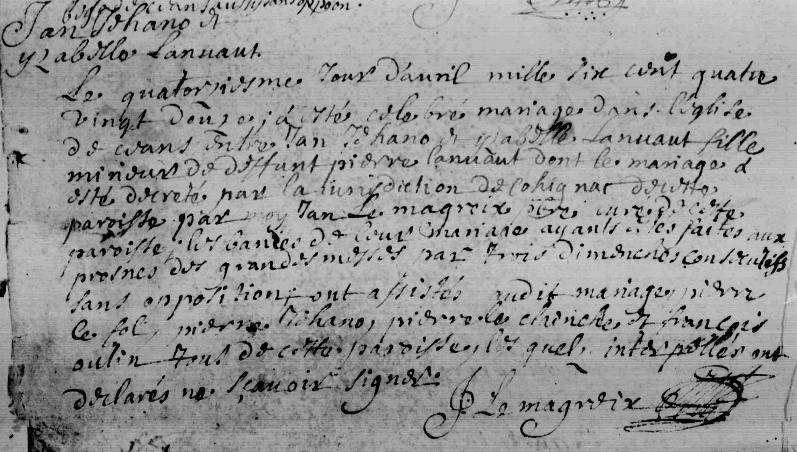 Jan Jehano et
yzabelle Lanvaut
Le quatorziesme Jour d'avril mille six cent quatre
vingt douze, a esté celebré mariage dans l'eglise
de ceans Entre Jan Jehano et yzabelle Lanvaut fille
mineur de deffunt pierre lanvaut dont le mariage a
esté decreté par la jurisdiction de Cohignac de cette
paroisse par moy Jan Le magreix curé de cette
paroisse, les banies de leur mariage ayants estés faites aux
prosnes des grandes messes par trois dimenches consecutifs
sans opposition, ont assistés audit mariage pierre
le fol, pierre Jehano, pierre le chinche et françois
oulin tous de cette paroisse, les quels interpellés ont
declarés ne sçavoir signer.
J Le magreix